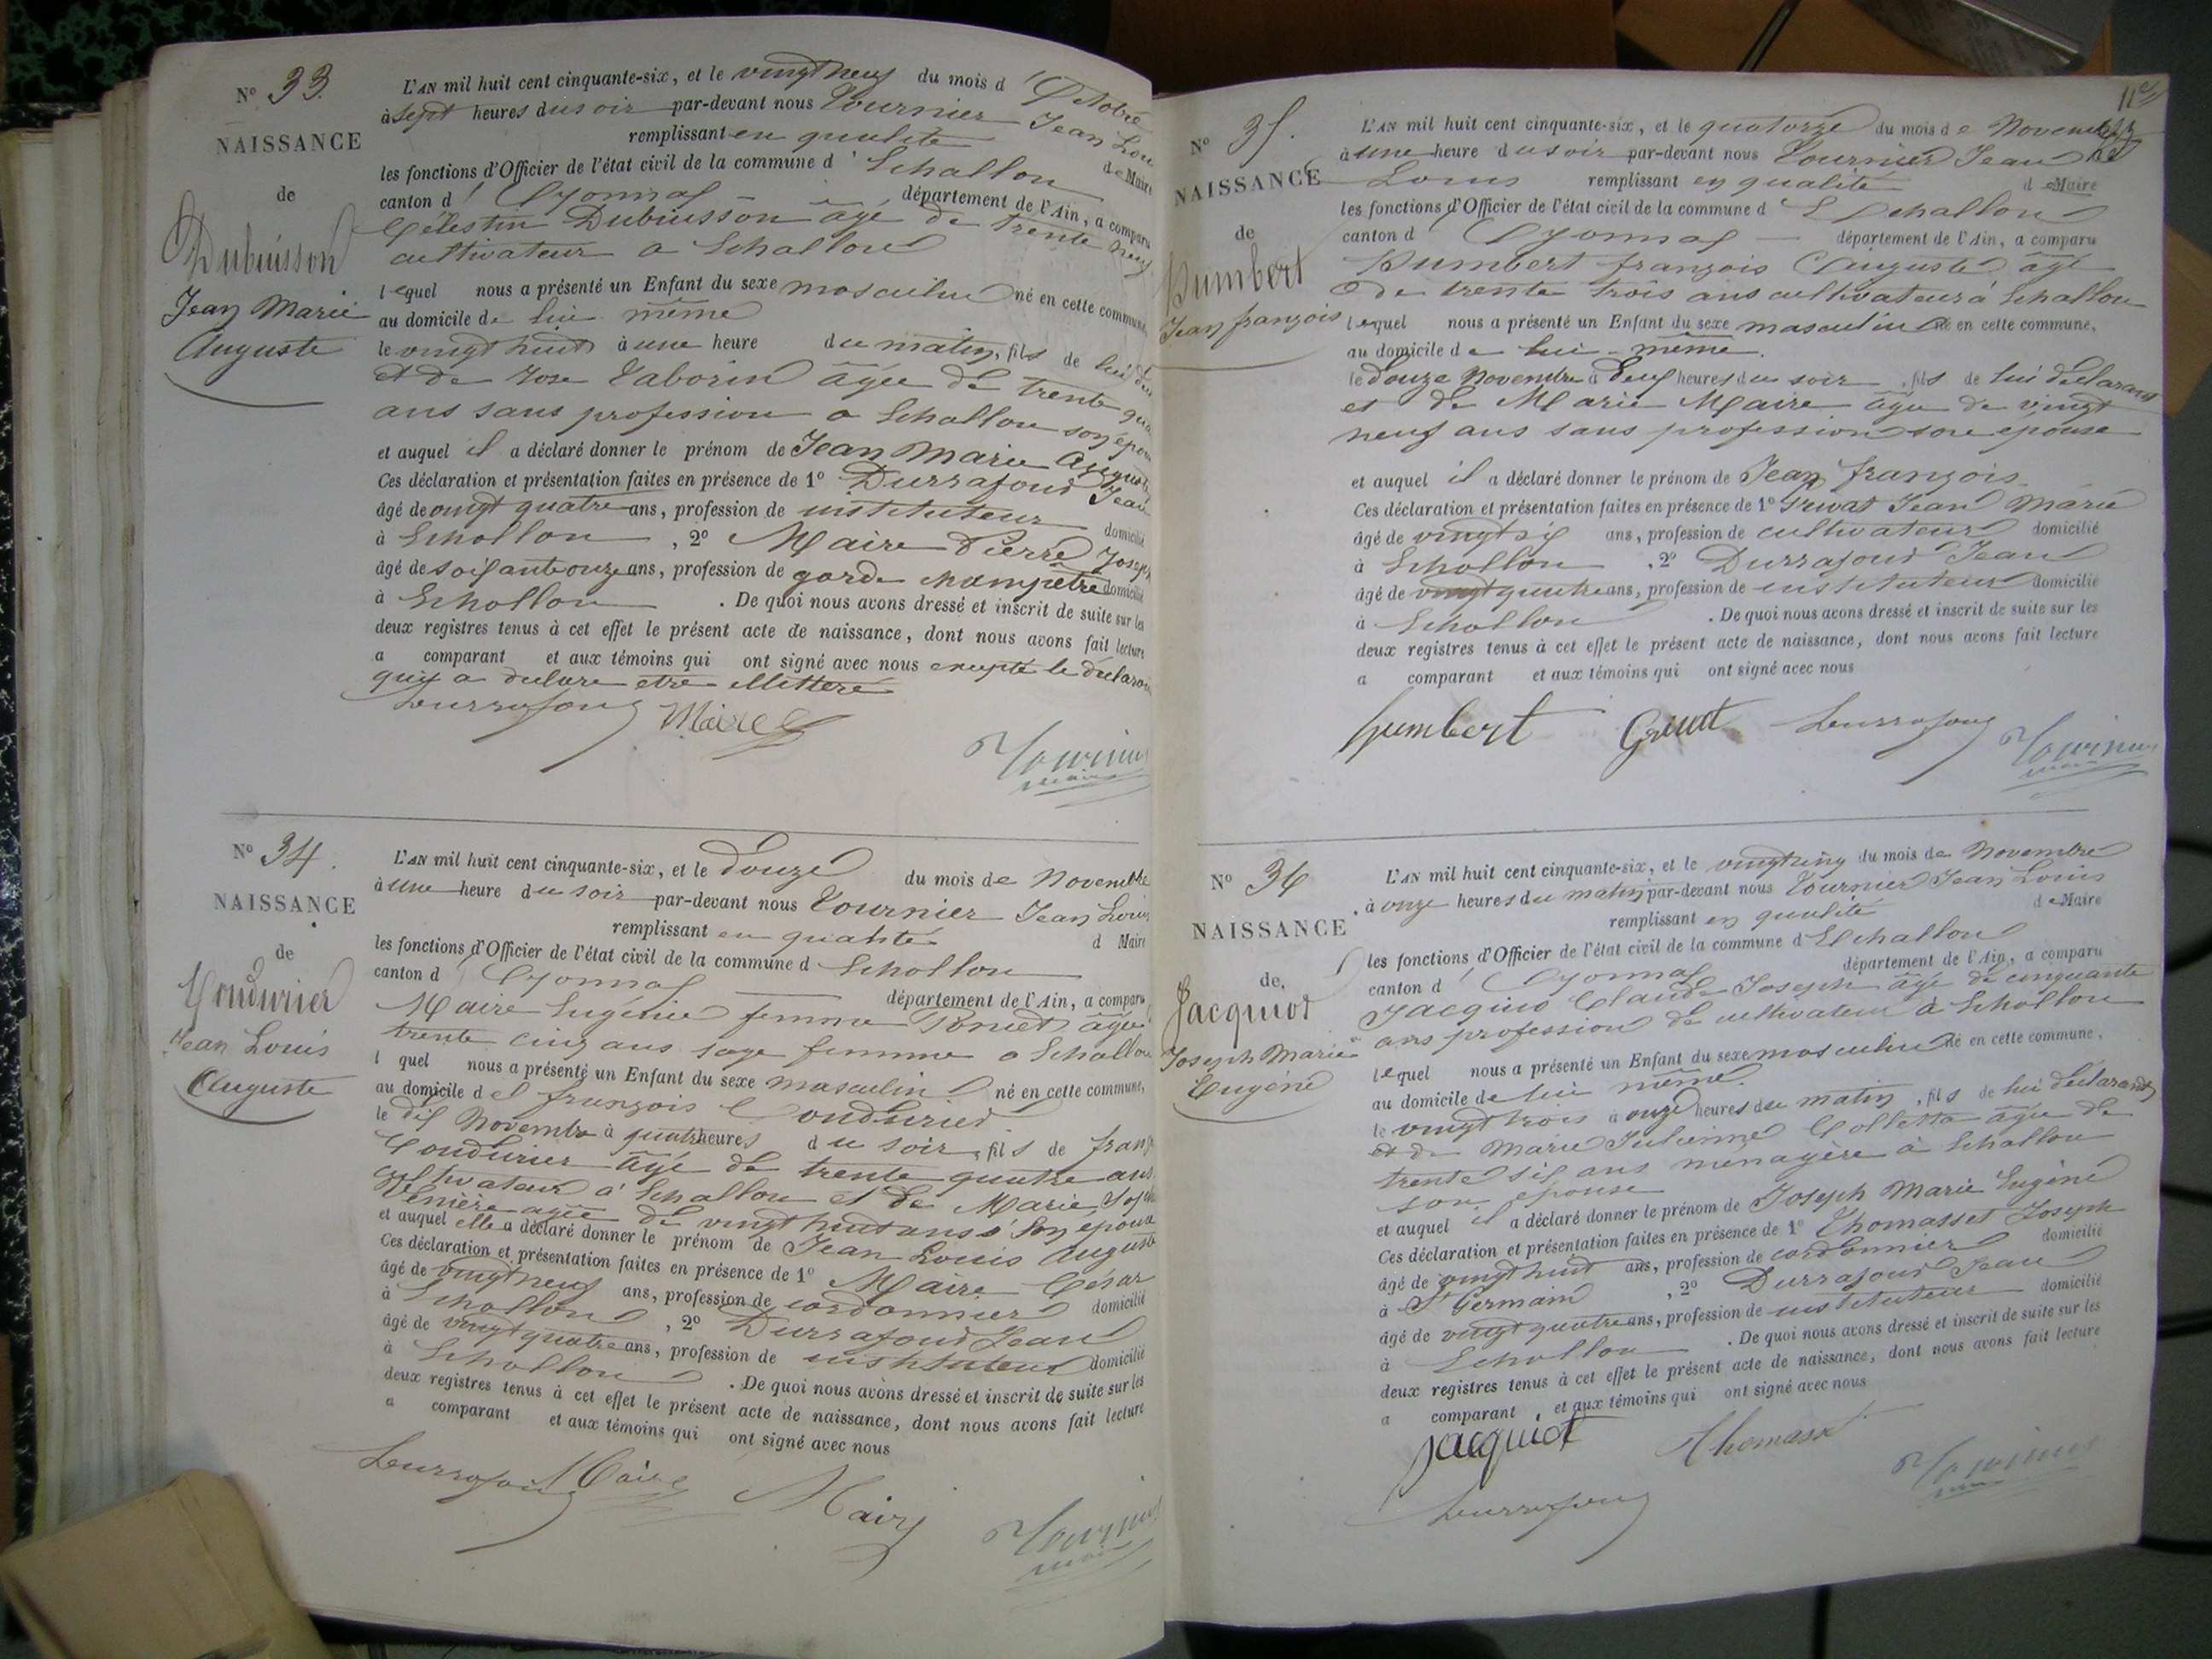 N° 33.
NAISSANCE
de
Dubuisson
Jean Marie
Auguste
L'AN mil huit cent cinquante-six, et le vingt neuf du mois d'Octobre
à sept heures du soir par-devant nous Tournier Jean Lou
remplissant en qualité de Maire
les fonctions d'Officier de l'état civil de la commune d'Echallon
canton d'Oyonnax département de l'Ain, a comparu
Célestin Dubuisson âgé de trente neuf
cultivateur a Echallon
lequel nous a présenté un Enfant du sexe masculin né en cette commune,
au domicile de lui même
le vingt huit à une heure du matin, fils de lui
et de Rose Taborin âgée de trente
ans sans profession a Echallon son
et auquel il a déclaré donner le prénom de Jean Marie Auguste
Ces déclaration et présentation faites en présence de 1° Durrafour Jean
âgé de vingt quatre ans, profession de instituteur domicilié
à Echallon, 2° Maire Pierre Joseph
âgé de soixante onze ans, profession de garde champêtre domicilié
à Echallon. De quoi nous avons dressé et inscrit de suite sur les
deux registres tenus à cet effet le présent acte de naissance, dont nous avons fait lecture
a comparant et aux témoins qui ont signé avec nous excepté le
qui a déclaré être illettéré
Durrafour Maire
Tournier
maire
N° 34.
NAISSANCE
de
Coudurier
Jean Louis
Auguste
L'AN mil huit cent cinquante-six, et le douze du mois de Novembre
à une heure du soir par-devant nous Tournier Jean Louis
remplissant en qualité d Maire
les fonctions d'Officier de l'état civil de la commune d Echallon
canton d'Oyonnax département de l'Ain, a comparu
Maire Eugénie femme Poncet âgée
trente cinq ans sage femme a Echallon
l quel nous a présenté un Enfant du sexe masculin né en cette commune,
au domicile de françois Coudurier
le dix Novembre à quatre heures du soir, fils de
Coudurier âgé de trente quatre ans
cultivateur à Echallon et de Marie
âgée de vingt huit ans son epouse
et auquel elle a déclaré donner le prénom de Jean Louis Auguste
Ces déclaration et présentation faites en présence de 1° Maire César
âgé de vingt neuf ans, profession de cordonnier domicilié
à Echallon, 2° Durrafour Jean
âgé de vingt quatre ans, profession de instituteur domicilié
à Echallon. De quoi nous avons dressé et inscrit de suite sur les
deux registres tenus à cet effet le présent acte de naissance, dont nous avons fait lecture
a comparant et aux témoins qui ont signé avec nous
Durrafour Maire Maire
Tournier
maire
N° 35.
NAISSANCE
de
Humbert
Jean françois
L'AN mil huit cent cinquante-six, et le quatorze du mois de Novembre
à une heure du soir par-devant nous Tournier Jean
Louis remplissant en qualité de Maire
les fonctions d'Officier de l'état civil de la commune d'Echallon
canton d'Oyonnax département de l'Ain, a comparu
Humbert françois Auguste âgé
de trente trois ans cultivateur à Echallon
lequel nous a présenté un Enfant du sexe masculin né en cette commune,
au domicile de lui-même.
le douze Novembre à deux heures du soir, fils de lui déclarant
et de Marie Maire âgée de vingt
neuf ans sans profession son epouse
et auquel il a déclaré donner le prénom de Jean françois
Ces déclaration et présentation faites en présence de 1° Grivat Jean Marie
âgé de vingt six ans, profession de cultivateur domicilié
à Echallon, 2° Durrafour Jean
âgé de vingt quatre ans, profession de instituteur domicilié
à Echallon. De quoi nous avons dressé et inscrit de suite sur les
deux registres tenus à cet effet le présent acte de naissance, dont nous avons fait lecture
a comparant et aux témoins qui ont signé avec nous
humbert Durrafour
Tournier
maire
N° 36
NAISSANCE
de
Jacquiot
Joseph Marie
Eugéne
L'AN mil huit cent cinquante-six, et le vingt cinq du mois de Novembre
à onze heures du matin par-devant nous Tournier Jean Louis
remplissant en qualité de Maire
les fonctions d'Officier de l'état civil de la commune d'Echallon
canton d'Oyonnax département de l'Ain, a comparu
Jacquio Claude Joseph âgé de cinquante
ans profession de cultivateur à Echallon
lequel nous a présenté un Enfant du sexe masculin né en cette commune,
au domicile de lui même.
le vingt trois à onze heures du matin, fils de lui déclarant
et de Marie Julienne Colletta âgée de
trente six ans ménagère à Echallon
son épouse
et auquel il a déclaré donner le prénom de Joseph Marie Eugéne
Ces déclaration et présentation faites en présence de 1° Thomasset Joseph
âgé de vingt huit ans, profession de cordonnier domicilié
à St Germain, 2° Durrafour Jean
âgé de vingt quatre ans, profession de instituteur domicilié
à Echallon. De quoi nous avons dressé et inscrit de suite sur les
deux registres tenus à cet effet le présent acte de naissance, dont nous avons fait lecture
a comparant et aux témoins qui ont signé avec nous
jacquiot Thomasset
Durrafour
Tournier
maire